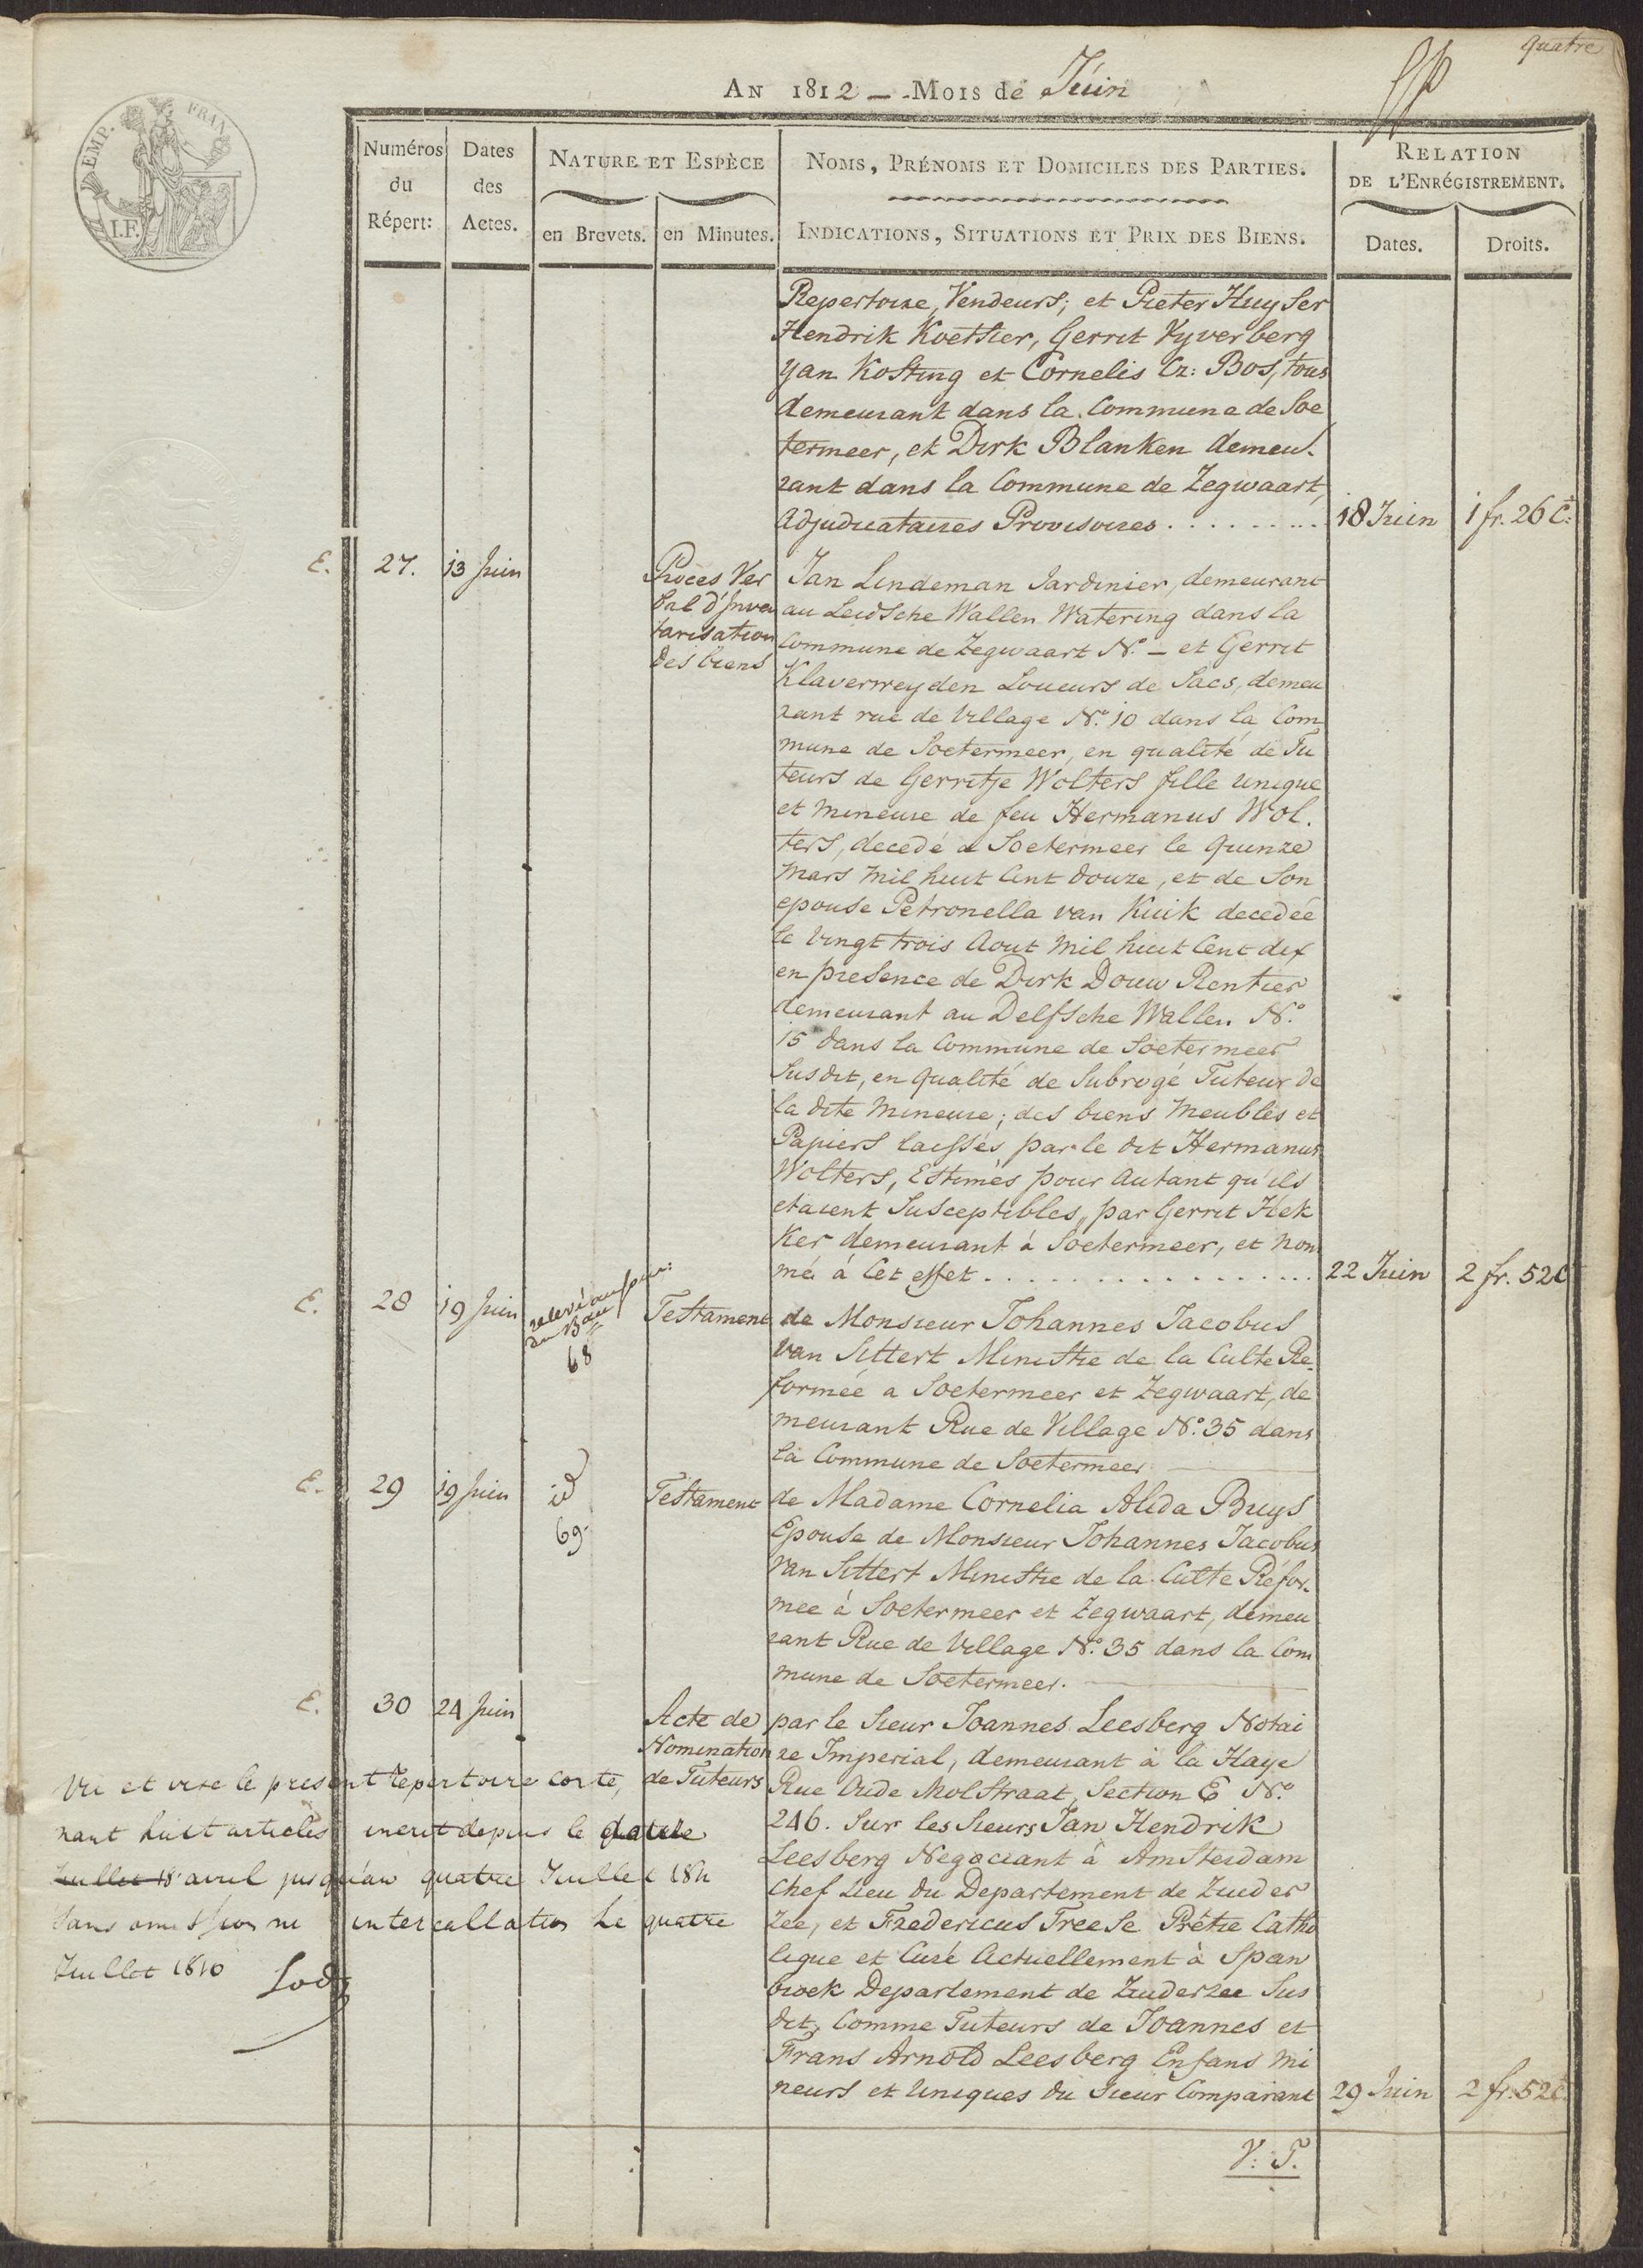 Quatre
AN 1812 — Mois de Juin
EMP. FRAN
I.F.
Numéros du Répert:
Dates des Actes.
NATURE ET ESPÈCE
en Brevets.
en Minutes.
NOMS, PRÉNOMS ET DOMICILES DES PARTIES.
INDICATIONS, SITUATIONS ET PRIX DES BIENS.
RELATION
DE L'ENRéGISTREMENT.
Dates.
Droits.
Repertoire, Vendeurs; et Pieter Huyser
Hendrik Koetsier, Gerrit Vyverberg
Yan Kosting et Cornelis Cz: Bos, tous
demeurant dans la Commune de Soe
termeer, et Dirk Blanken demeu-
rant dans la Commune de Zegwaart,
adjudicataires Provisoires . . . . . . . . . 18 Juin 1 fr. 26 Ct:
E. 27. 13 Juin
Procès Ver
bal d'Inven
tarisation
des biens
Jan Lindeman Jardinier, demeurant
au Leidsche Wallen Watering dans la
Commune de Zegwaart No. – et Gerrit
Klaverweyden Loueurs de Sacs, demeu
rant rue de Village No. 10 dans la Com
mune de Soetermeer, en qualité de Tu
teurs de Gerritje Wolters fille unique
et mineure de feu Hermanus Wol.
ters, decedé a Soetermeer le Quinze
Mars mil huit Cent douze, et de Son
epouse Petronella van Kuik decedeé
le vingt trois Aout mil huit Cent dix
en presence de Dirk Douw Rentier
demeurant au Delfsche Wallen No.
15 dans la Commune de Soetermeer
Susdit, en qualité de Subrogé Tuteur de
la dite mineure; des biens Meubles et
Papiers laissés par le dit Hermanus
Wolters, Estimés pour autant qu'ils
etaient Susceptibles, par Gerrit Hek
ker demeurant à Soetermeer, et nom
mé à Cet effet . . . . . . . . . . . . . . . . 22 Juin 2 fr. 52 C
E. 28 19 Juin
68
Testament
de Monsieur Johannes Jacobus
van Sittert Ministre de la Culte Re-
formée a Soetermeer et Zegwaart, de
meurant Rue de Village No. 35 dans
la Commune de Soetermeer
E. 29 19 Juin
id
69.
Testament
de Madame Cornelia Alida Buys
Epouse de Monsieur Johannes Jacobus
van Sittert Ministre de la Culte Réfor-
mee à Soetermeer et Zegwaart, demeu
rant Rue de Village No. 35 dans la Com
mune de Soetermeer.
E. 30 24 Juin
Acte de
Nomination
de Tuteurs
par le Sieur Joannes Leesberg Notai
re Imperial, demeurant à la Haye
Rue Oude Molstraat, Section E No.
246. Sur les Sieurs Jan Hendrik
Leesberg Negociant à Amsterdam
Chef Lieu du Departement de Zuider
Zee, et Fredericus Treese Prêtre Catho
lique et Curé Actuellement à Span
broek Departement de Zuiderzee Sus
dit, Comme Tuteurs de Joannes et
Frans Arnold Leesberg Enfans mi
neurs et Uniques du Sieur Comparant 29 Juin 2 fr. 52 C.
Vu et visé le present repertoire conte,
nant huit articles inscrit depuis le
Juillet 18 avril jusqu'au quatre Juillet 18
Sans omission ni intercallation le quatre
Juillet 1810
V: T.